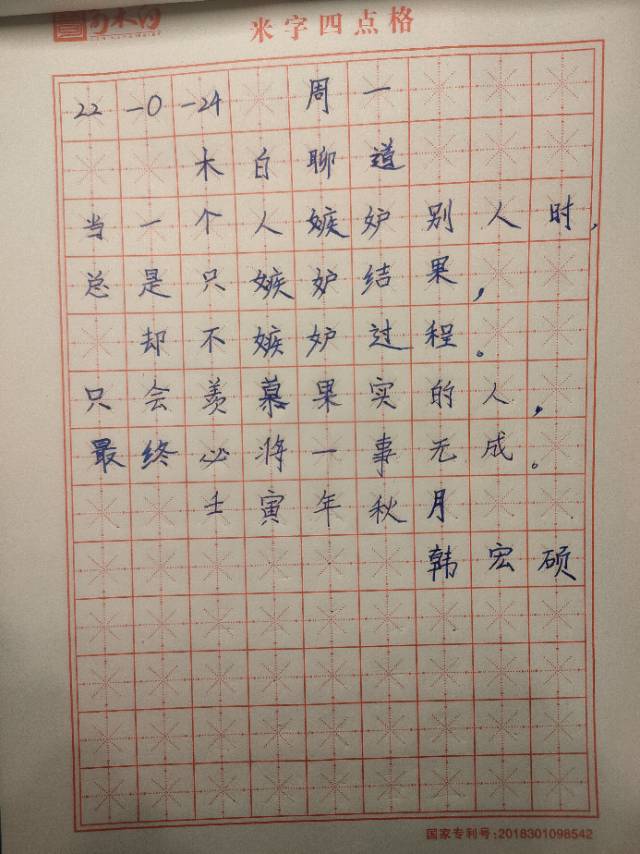 米字四点格
22-10-24 周一
木白聊道
当一个人嫉妒别人时,
总是只嫉妒结果,
却不嫉妒过程。
只会羡慕果实的人,
最终必将一事无成。
壬寅年秋月
韩宏硕
国家专利号:2018301098542